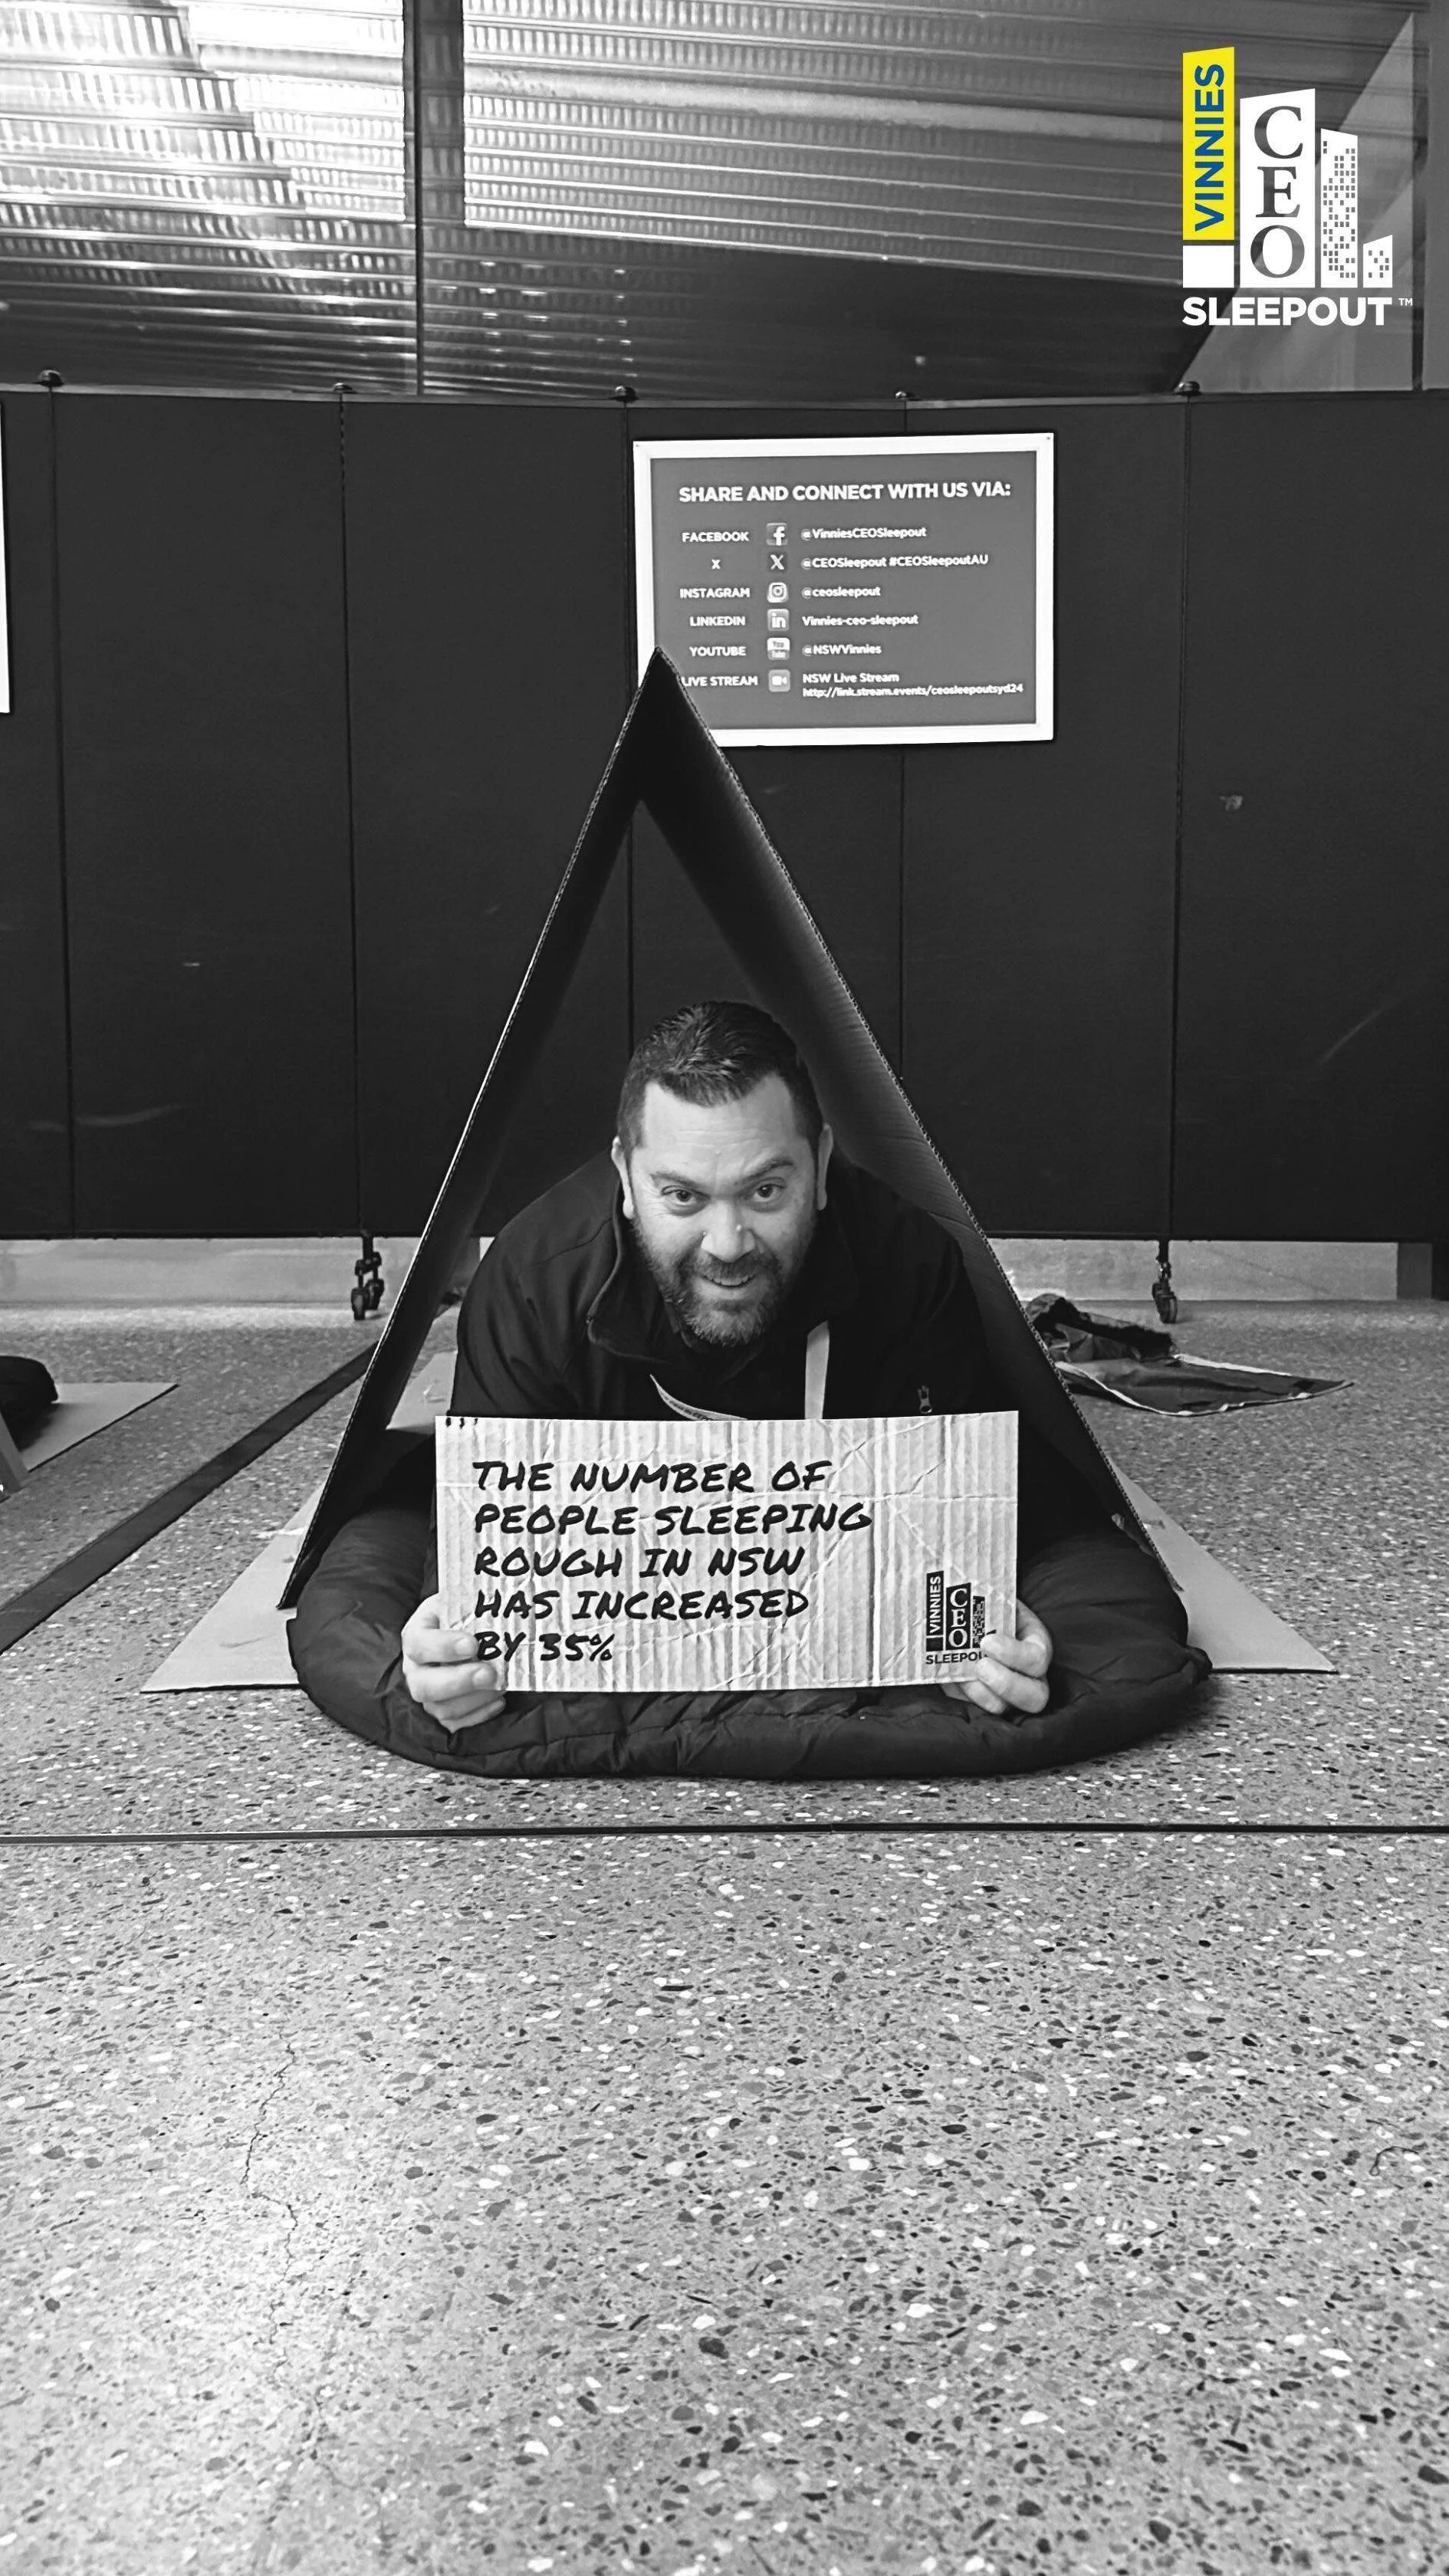 VINNIES
CEO
SLEEPOUT™
SHARE AND CONNECT WITH US VIA:
FACEBOOK f @VinniesCEOSleepout
X X @CEOSleepout #CEOSleepoutAU
INSTAGRAM @ceosleepout
LINKEDIN in Vinnies-ceo-sleepout
YOUTUBE You Tube @NSWVinnies
LIVE STREAM NSW Live Stream
http://link.stream.events/ceosleepoutsyd24
THE NUMBER OF
PEOPLE SLEEPING
ROUGH IN NSW
HAS INCREASED
BY 35%
VINNIES
CEO
SLEEPOU